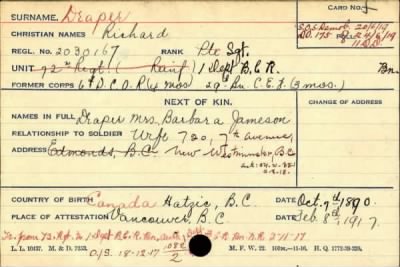 CARD NO.
SURNAME. Draper
CHRISTIAN NAMES Richard
S.O.S. Demob. 20/6/19
REGL. NO. 2030167 RANK Pte Sgt.
UNIT 72nd Regt. ( 1 Dept B.C.R. Bn.
FORMER CORPS 6th D.C.O.R. (4 mos 29th Bn. C.E.F. (3 mos.)
NEXT OF KIN. CHANGE OF ADDRESS
NAMES IN FULL Draper Mrs. Barbara Jameson
RELATIONSHIP TO SOLDIER Wife 720, 7th Avenue,
ADDRESS Edmonds, B.C. New Westminster, B.C.
COUNTRY OF BIRTH Canada Hatzic, B.C. DATE Oct. 7th 1890.
PLACE OF ATTESTATION Vancouver, B.C. DATE Feb 8th 1917.
O/S. 18-12-17
L. L. 10437. M. & D. 7353. M. F. W. 22. H. Q. 1772-39-339.